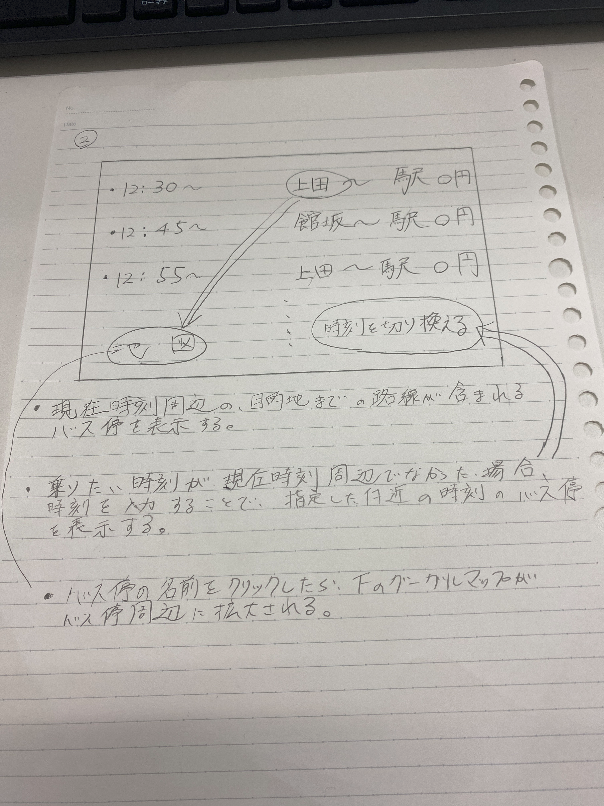 ②
・12:30～ 上田～ 駅 〇円
・12:45～ 館坂～ 駅 〇円
・12:55～ 上田～ 駅 〇円
地図 時刻を切り換える
・現在時刻周辺の、目的地までの路線が含まれる
バス停を表示する。
・乗りたい時刻が現在時刻周辺でなかった場合、
時刻を入力することで、指定した付近の時刻のバス停
を表示する。
・バス停の名前をクリックしたら、下のグーグルマップが
バス停周辺に拡大される。